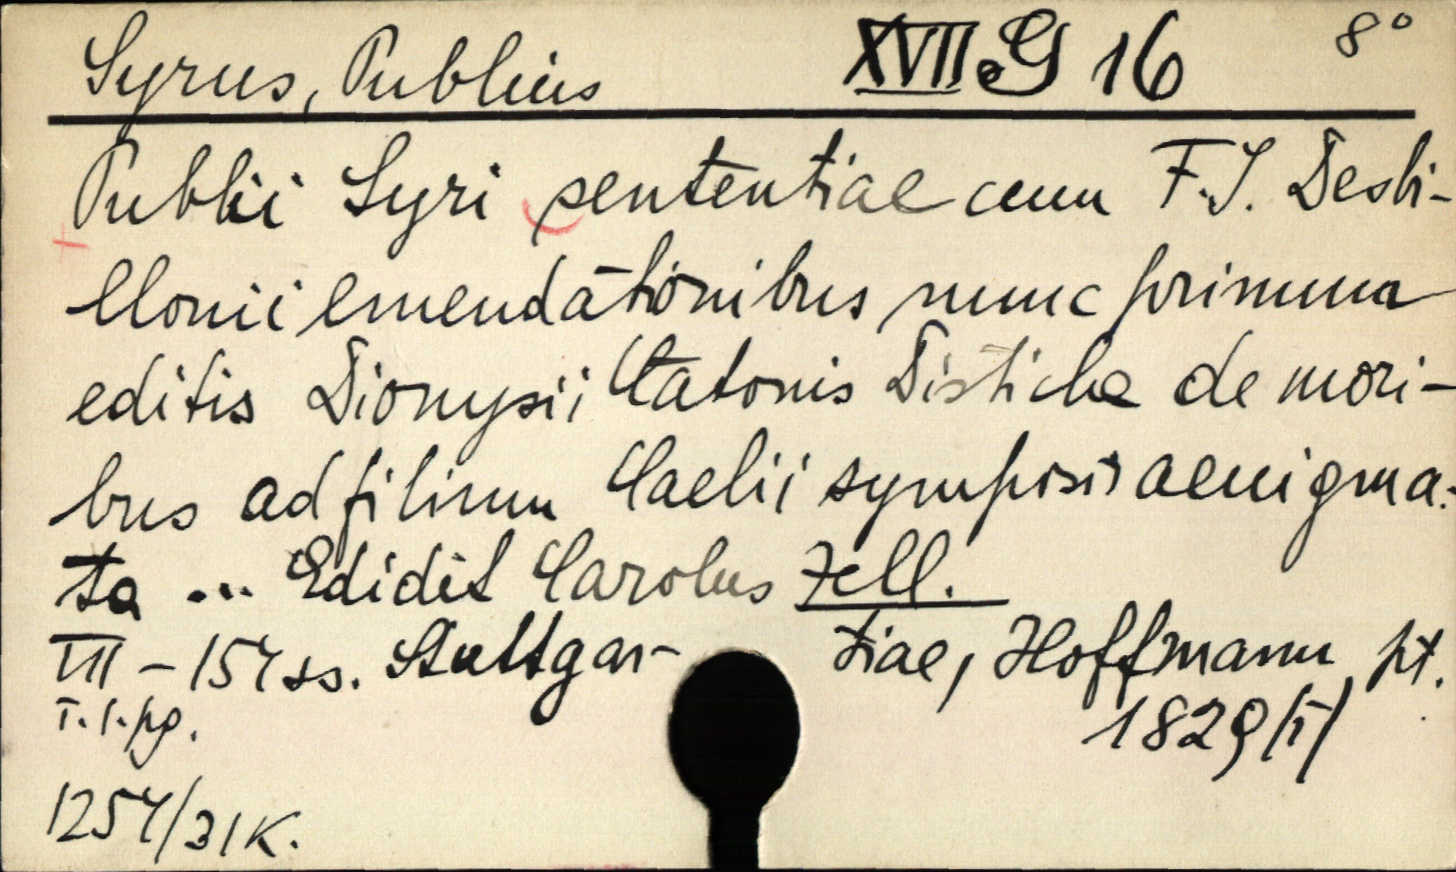 Syrus, Publius XVII G 16 8°
Publii Syri sententiae cum F. J. Desbi-
llonii emendationibus nunc primum
editis Dionysii Catonis Disticha de mori-
bus ad filium Caelii symposii aenigma-
ta ... Edidit Carolus Zell.
VII - 154 ss. Stuttgar- tiae, Hoffmann pt.
T. 1. pg. 1829 /1/
1254/31K.